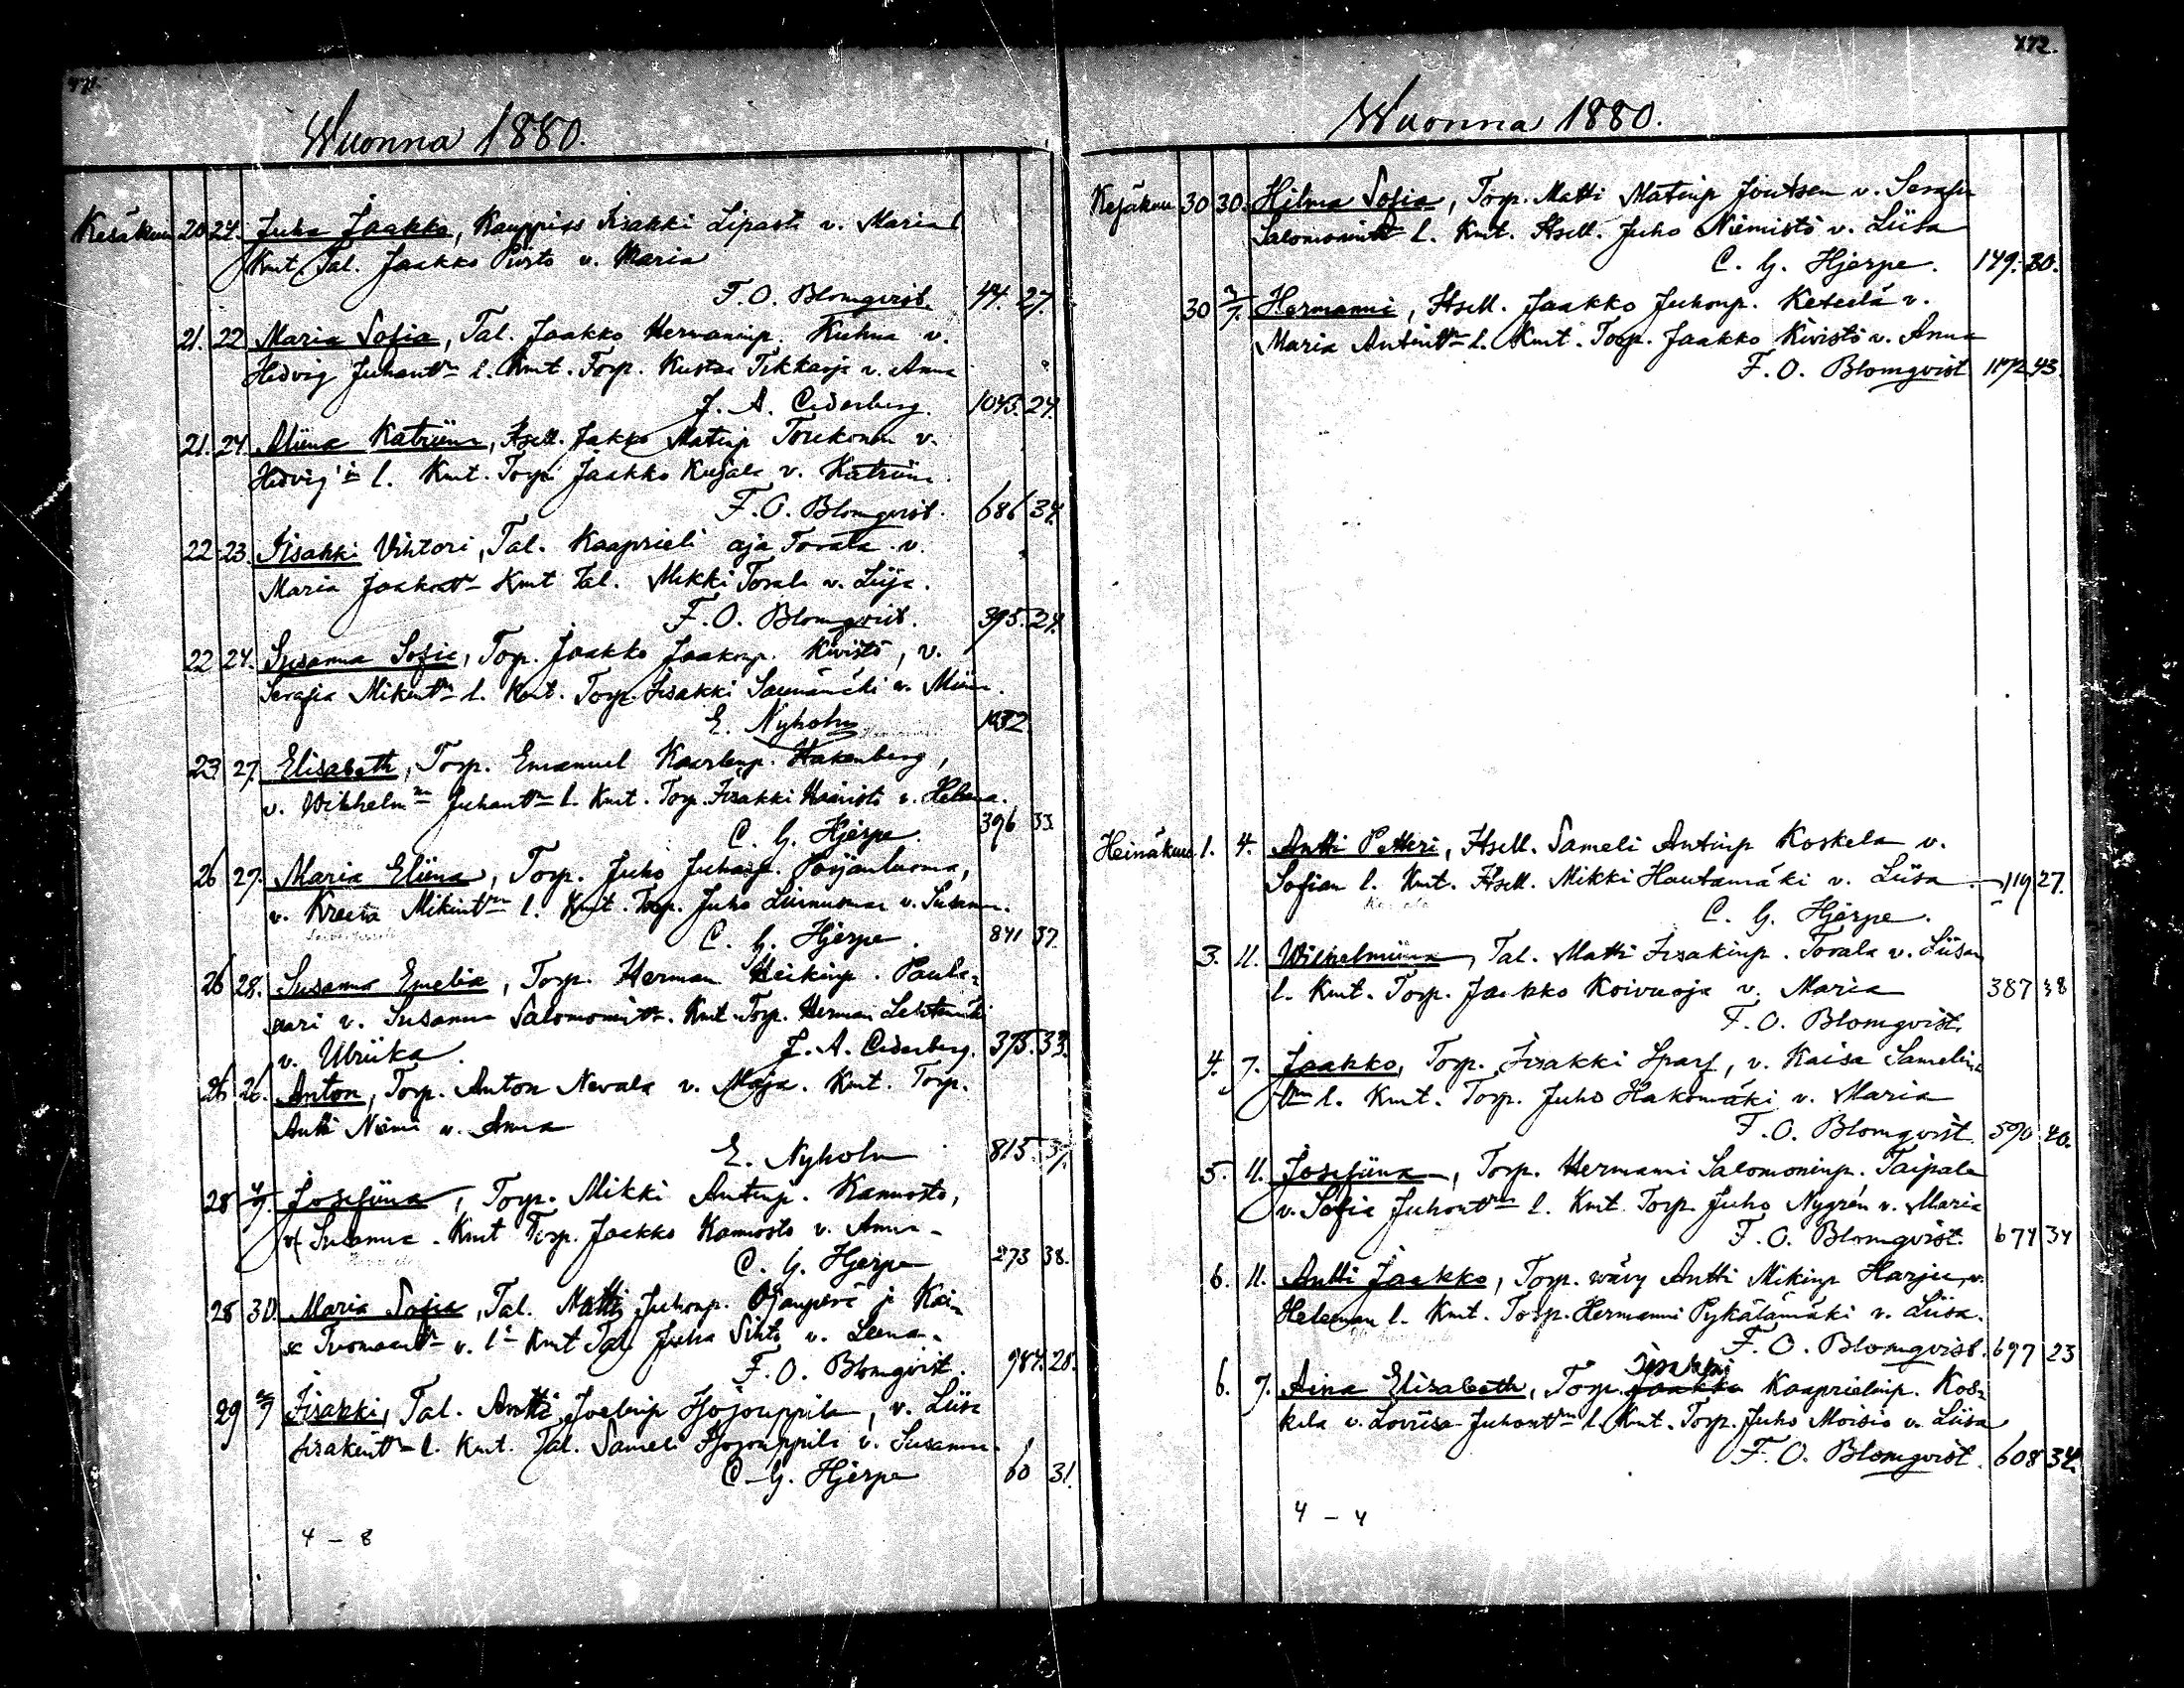 471.
Wuonna 1880.
Kesäkuu 20 24. Juha Jaakko, Kauppias Iisakki Lipasti v. Maria l
Kmt. Tal. Jaakko Piirto v. Maria
F. O. Blomqvist. 44. 27.
21. 22 Maria Sofia, Tal. Jaakko Hermaninp. Kuhna v.
Hedvig Juhantr l. Kmt. Torp. Kustaa Tikkaoja v. Anna
J. A. Cederberg. 1045. 24.
21. 24. Miina Katriina, Itsell. Jakko Matinp v.
Hedvig'in l. Kmt. Torp. Jaakko Kujala v. Katriina
F. O. Blomqvist. 686 34.
22 23. Iisakki Vihtori, Tal. Kaaprieli aja Torala v.
Maria Jaakontr Kmt Tal. Mikki Torala v. Liisa.
F. O. Blomqvist. 395. 24.
22 24. Susanna Sofia, Torp. Jaakko Jaakonp. Kivistö, v.
Serafia Mikintr l. Kmt. Torp. Iisakki Saunamäki v. Miina.
E. Nyholm
23 27. Elisabeth, Torp. Emanuel Kaarlenp. Hakenberg,
v. Wilhelmn Juhantr l. Kmt. Torp. Iisakki v. Helena.
C. G. Hjerpe. 396 33.
26 27. Maria Eliina, Torp. Juho Juhanp. Porjanluoma,
v. Kreeta Mikintr l. Kmt. Torp. Juho v. Susanna.
C. G. Hjerpe. 841 37.
26 28. Susanna Emelia, Torp. Herman Heikinp. Paula-
aari v. Susanna Salomonintr. Kmt. Torp. Herman
v. Ulriika. J. A. Cederberg. 375. 33.
26 26. Anton, Torp. Anton Nevala v. Maja. Kmt. Torp.
Antti Niemi v. Anna
E. Nyholm 815. 31.
28 4/7. Josefiina, Torp. Mikki Antinp. Kamosto,
v. Susanna. Kmt Torp. Jaakko Kamosto v. Anna
C. G. Hjerpe 273 38.
28 30. Maria Sofia, Tal. Matti Juhonp. Ojanperä ja Kai-
sa Tuomaantr v. l. Kmt Tal. Juha Sihto v. Leena.
F. O. Blomqvist. 987. 28.
29 Iisakki, Tal. Antti Joelinp Hjojouppila, v. Liisa
Iisakintr l. Kmt. Tal. Sameli Hjojouppila v. Susanna.
C. G. Hjerpe 60 31.
4 – 8
472.
Wuonna 1880.
Kesäkuu 30 30. Hilma Sofia, Torp. Matti Matinp Joutsen v. Serafia
Salomonintr l. Kmt. Itsell. Juho Niemistö v. Liisa
C. G. Hjerpe. 149. 30.
30 Hermanni, Itsell. Jaakko Juhonp. Ketelä v.
Maria Antintr l. Kmt. Torp. Jaakko Kivistö v. Anna
F. O. Blomqvist 1172 43.
Heinäkuu 1. 4. Antti Petteri, Itsell. Sameli Antinp Koskela v.
Sofian l. Kmt. Itsell. Mikki Hautamäki v. Liisa. 119 27.
C. G. Hjerpe.
3. 11. Wilhelmiina, Tal. Matti Iisakinp. Torala v. Liisan
l. Kmt. Torp. Jaakko Koivuoja v. Maria 387 38
F. O. Blomqvist.
4. 7. Jaakko, Torp. Iisakki Sparf, v. Kaisa Samelin
trn l. Kmt. Torp. Juho Hakomäki v. Maria
F. O. Blomqvist. 590 40.
5. 11. Josefiina, Torp. Hermanni Salomoninp. Taipale
v. Sofia Juhontrn l. Kmt. Torp. Juho Nygrén v. Maria
F. O. Blomqvist. 674 34
6. 11. Antti Jaakko, Torp. wävy Antti Mikinp Harju, v.
Heleman l. Kmt. Torp. Hermanni Pykälämäki v. Liisa.
F. O. Blomqvist. 697 23
6. 7. Aina Elisabeth, Torp. Jaakko Iisakki Kaaprielinp. Kos-
kela v. Loviisa Juhontrn l. Kmt. Torp. Juho Moisio v. Liisa
F. O. Blomqvist. 608 34.
4 – 4